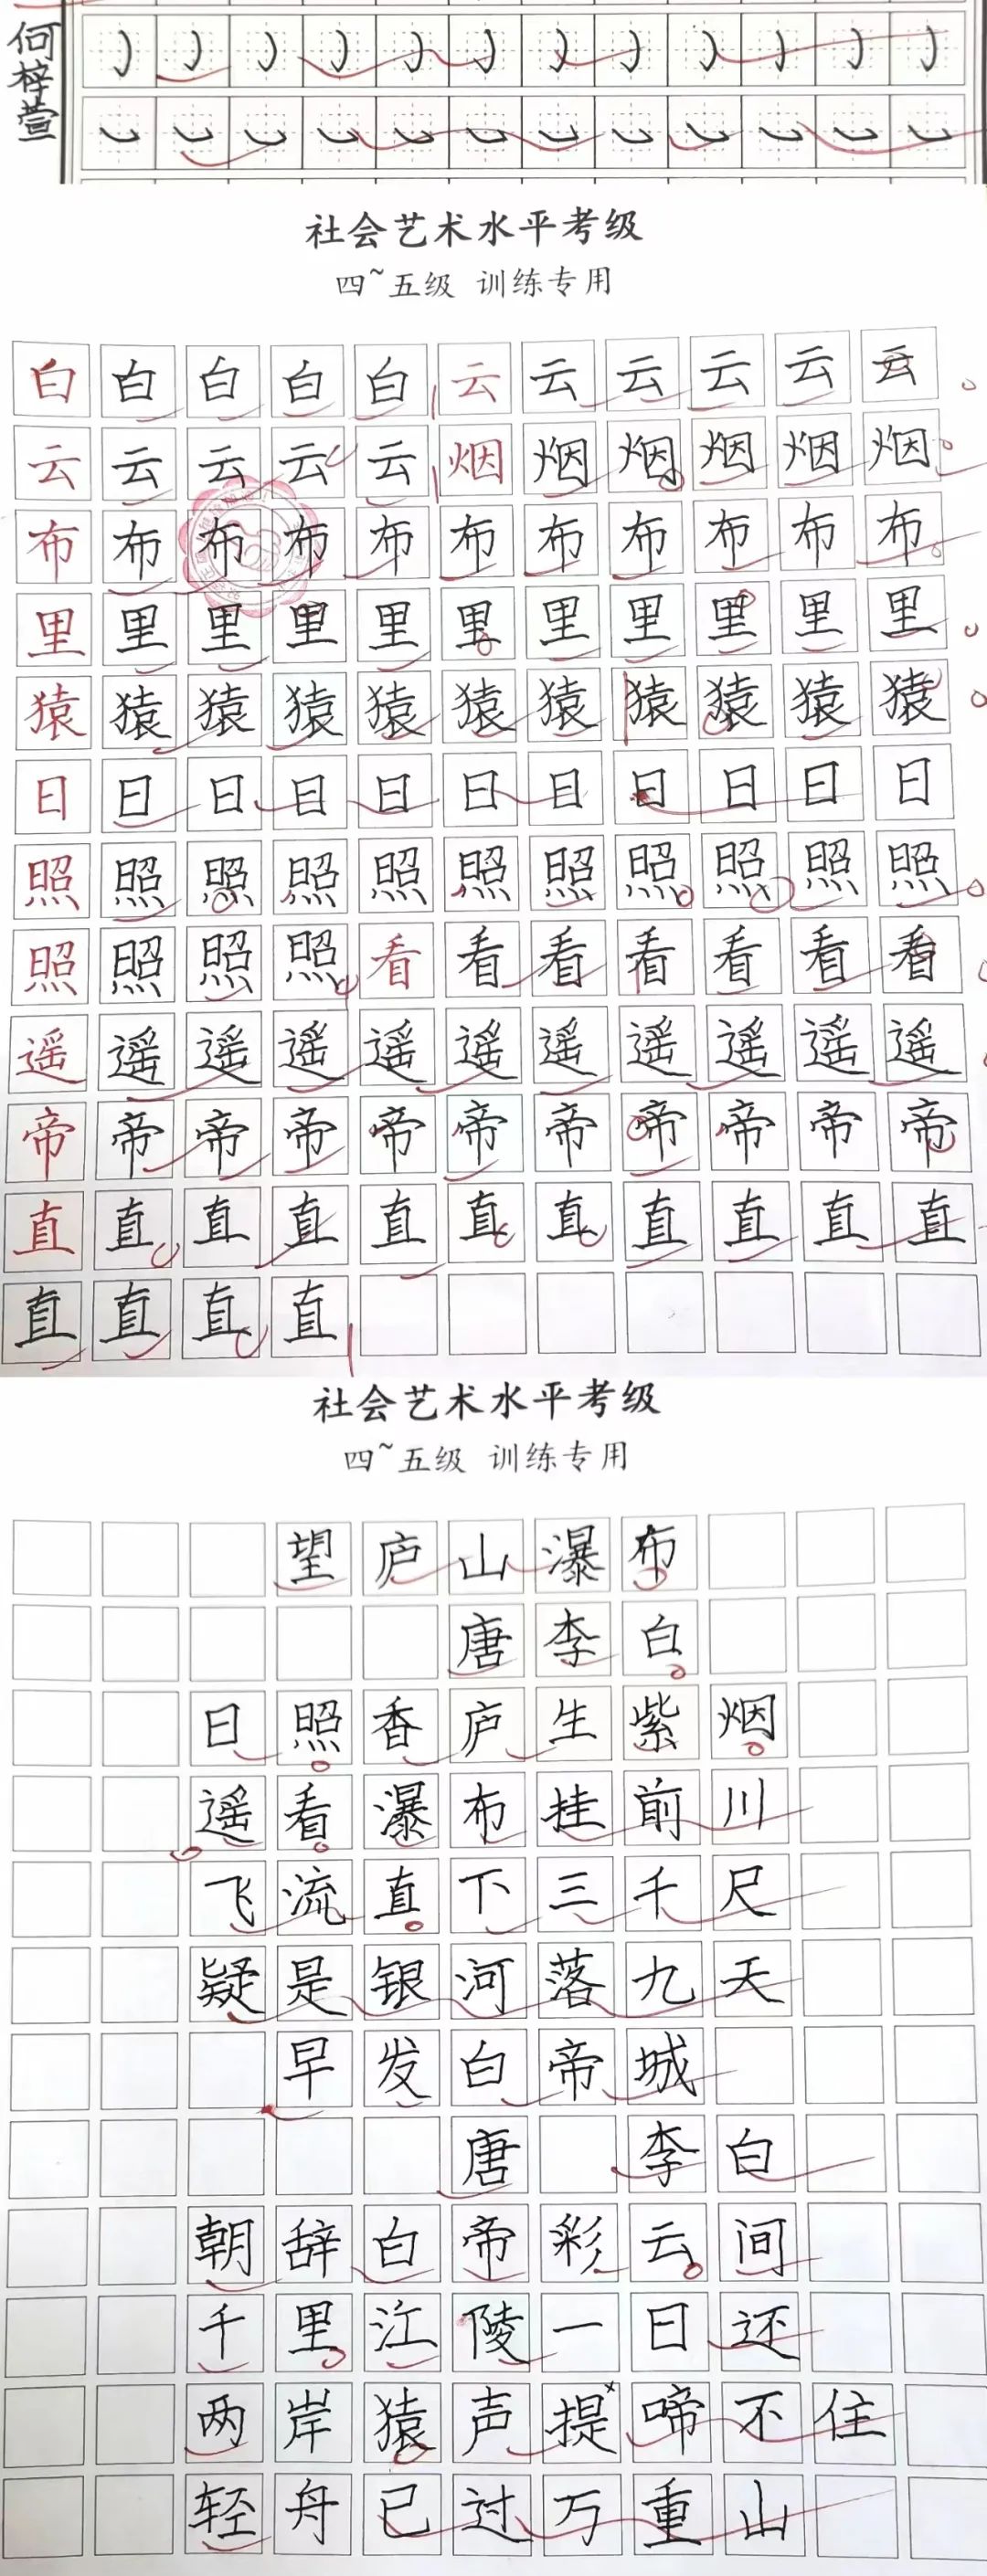 何梓萱
社会艺术水平考级
四~五级 训练专用
白白白白白云云云云云云
云云云云云烟烟烟烟烟烟
布布布布布布布布布布布
里里里里里里里里里里里
猿猿猿猿猿猿猿猿猿猿猿
日日日日日日日日日日日
照照照照照照照照照照照
照照照照看看看看看看看
遥遥遥遥遥遥遥遥遥遥遥
帝帝帝帝帝帝帝帝帝帝帝
直直直直直直直直直直直
直直直直
社会艺术水平考级
四~五级 训练专用
望庐山瀑布
唐李白
日照香庐生紫烟
遥看瀑布挂前川
飞流直下三千尺
疑是银河落九天
早发白帝城
唐 李白
朝辞白帝彩云间
千里江陵一日还
两岸猿声提啼不住
轻舟已过万重山